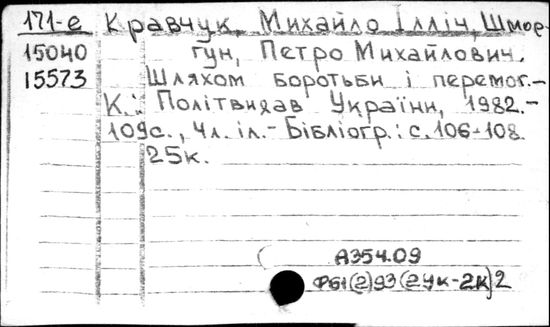 171-е Кравчук, Михайло Ілліч, Шмор-
15040 гун, Петро Михайлович.
15573 Шляхом боротьби і перемог.-
К.: Політвидав України, 1982.-
109с., 4л. іл.- Бібліогр.: с. 106-108.
25к.
А354.09
Ф61(2)93(2Ук-2К)2